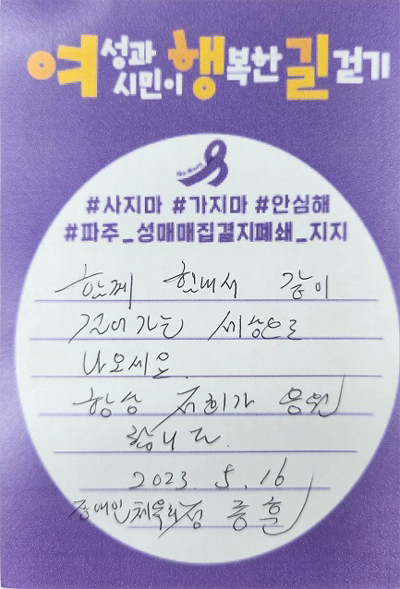 여성과 시민이 행복한 길 걷기
#사지마 #가지마 #안심해
#파주_성매매집결지폐쇄_지지
함께 힘내서 같이
걸어가는 세상으로
나오세요.
항상 저희가 응원
합니다.
2023. 5. 16
장애인체육회 정종훈